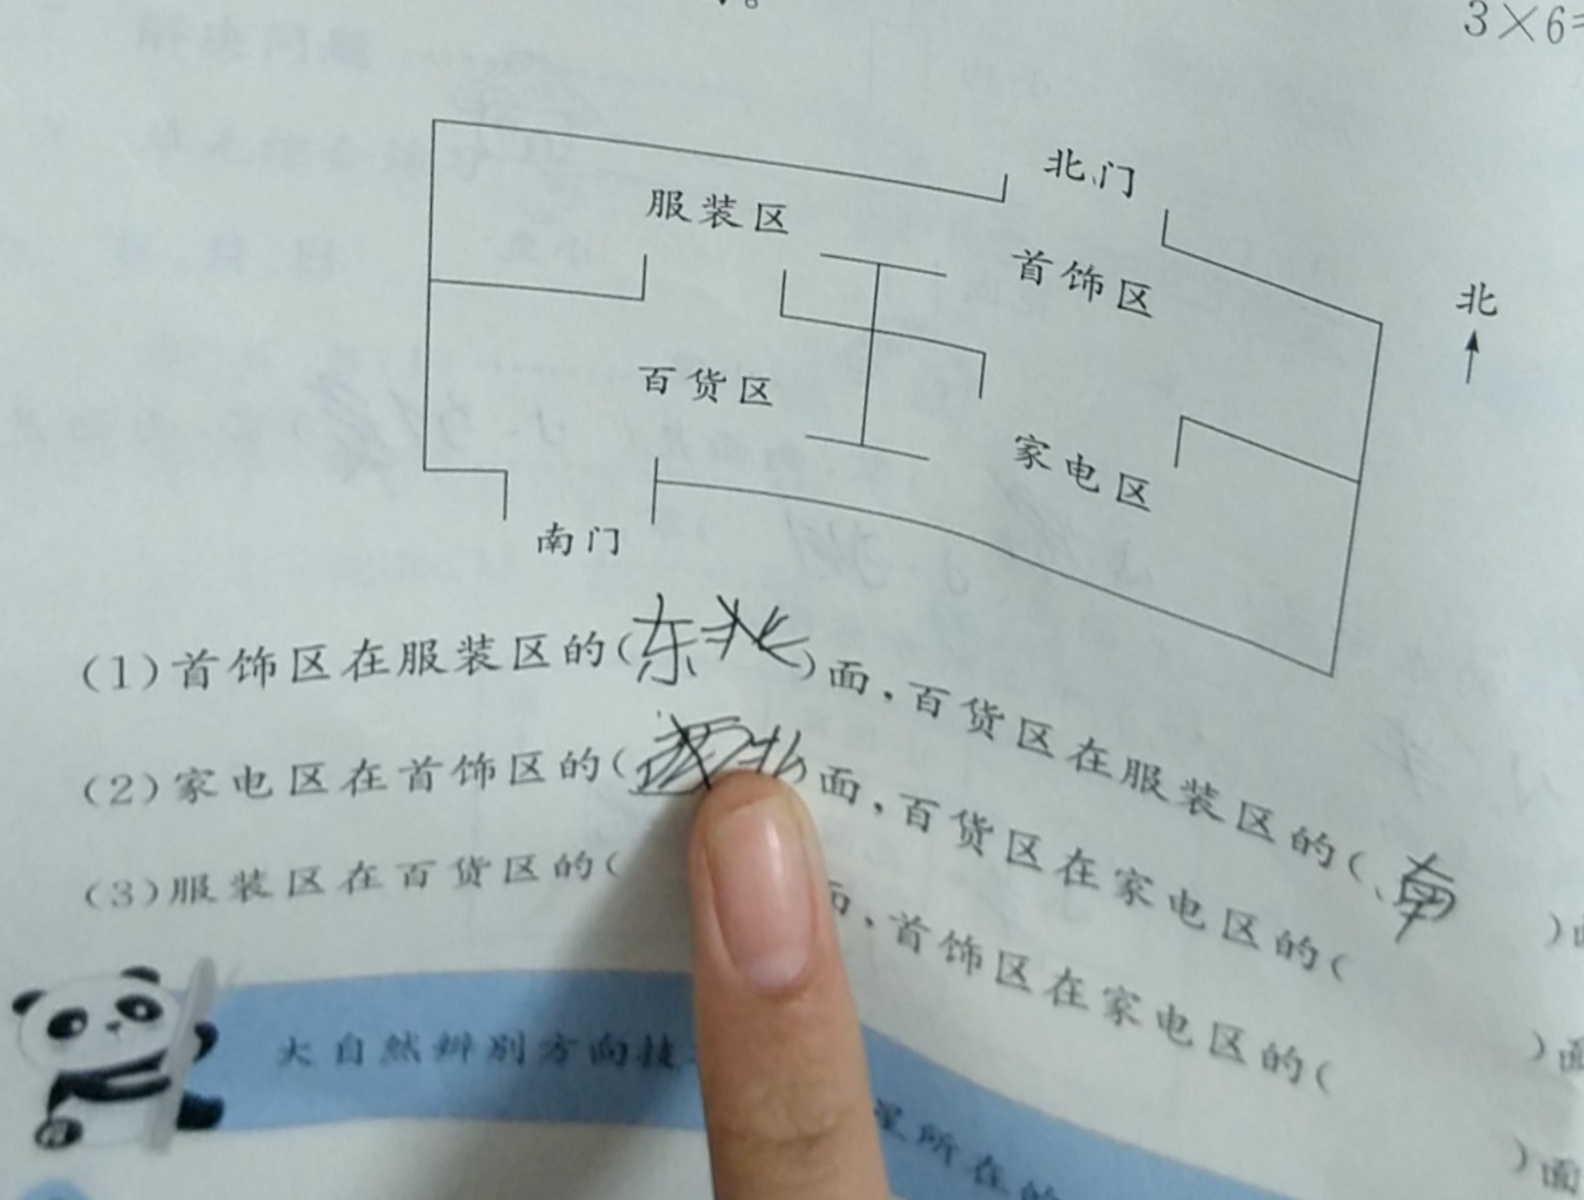 3×6=
北门
服装区
首饰区
北
百货区
家电区
南门
(1)首饰区在服装区的(东北)面,百货区在服装区的(南)面
(2)家电区在首饰区的(北)面,百货区在家电区的( )面
(3)服装区在百货区的( 面,首饰区在家电区的( )面
大自然辨别方向技
星所在的